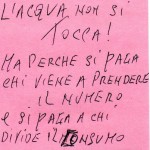 L'ACQUA NON SI
TOCCA!
MA PERCHE SI PAGA
CHI VIENE A PRENDERE
IL NUMERO
E SI PAGA A CHI
DIVIDE IL CONSUMO